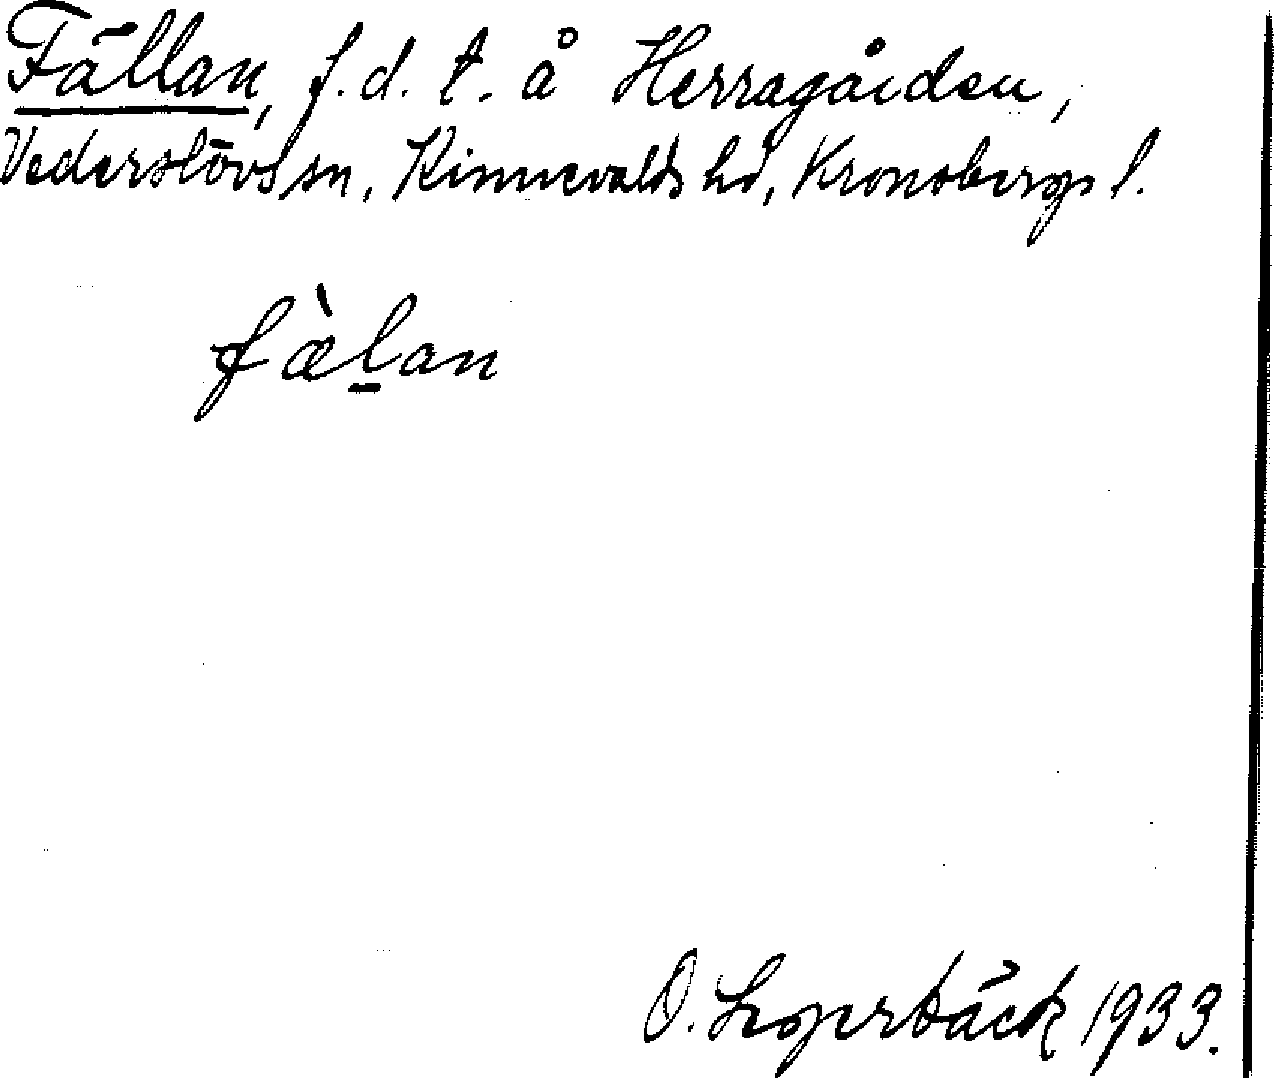 Fällan, f.d. t. å Herragården,
Vederslövs sn, Kinnevalds hd, Kronobergs l.
fæ̀l̠an
O. Lagerbäck 1933.